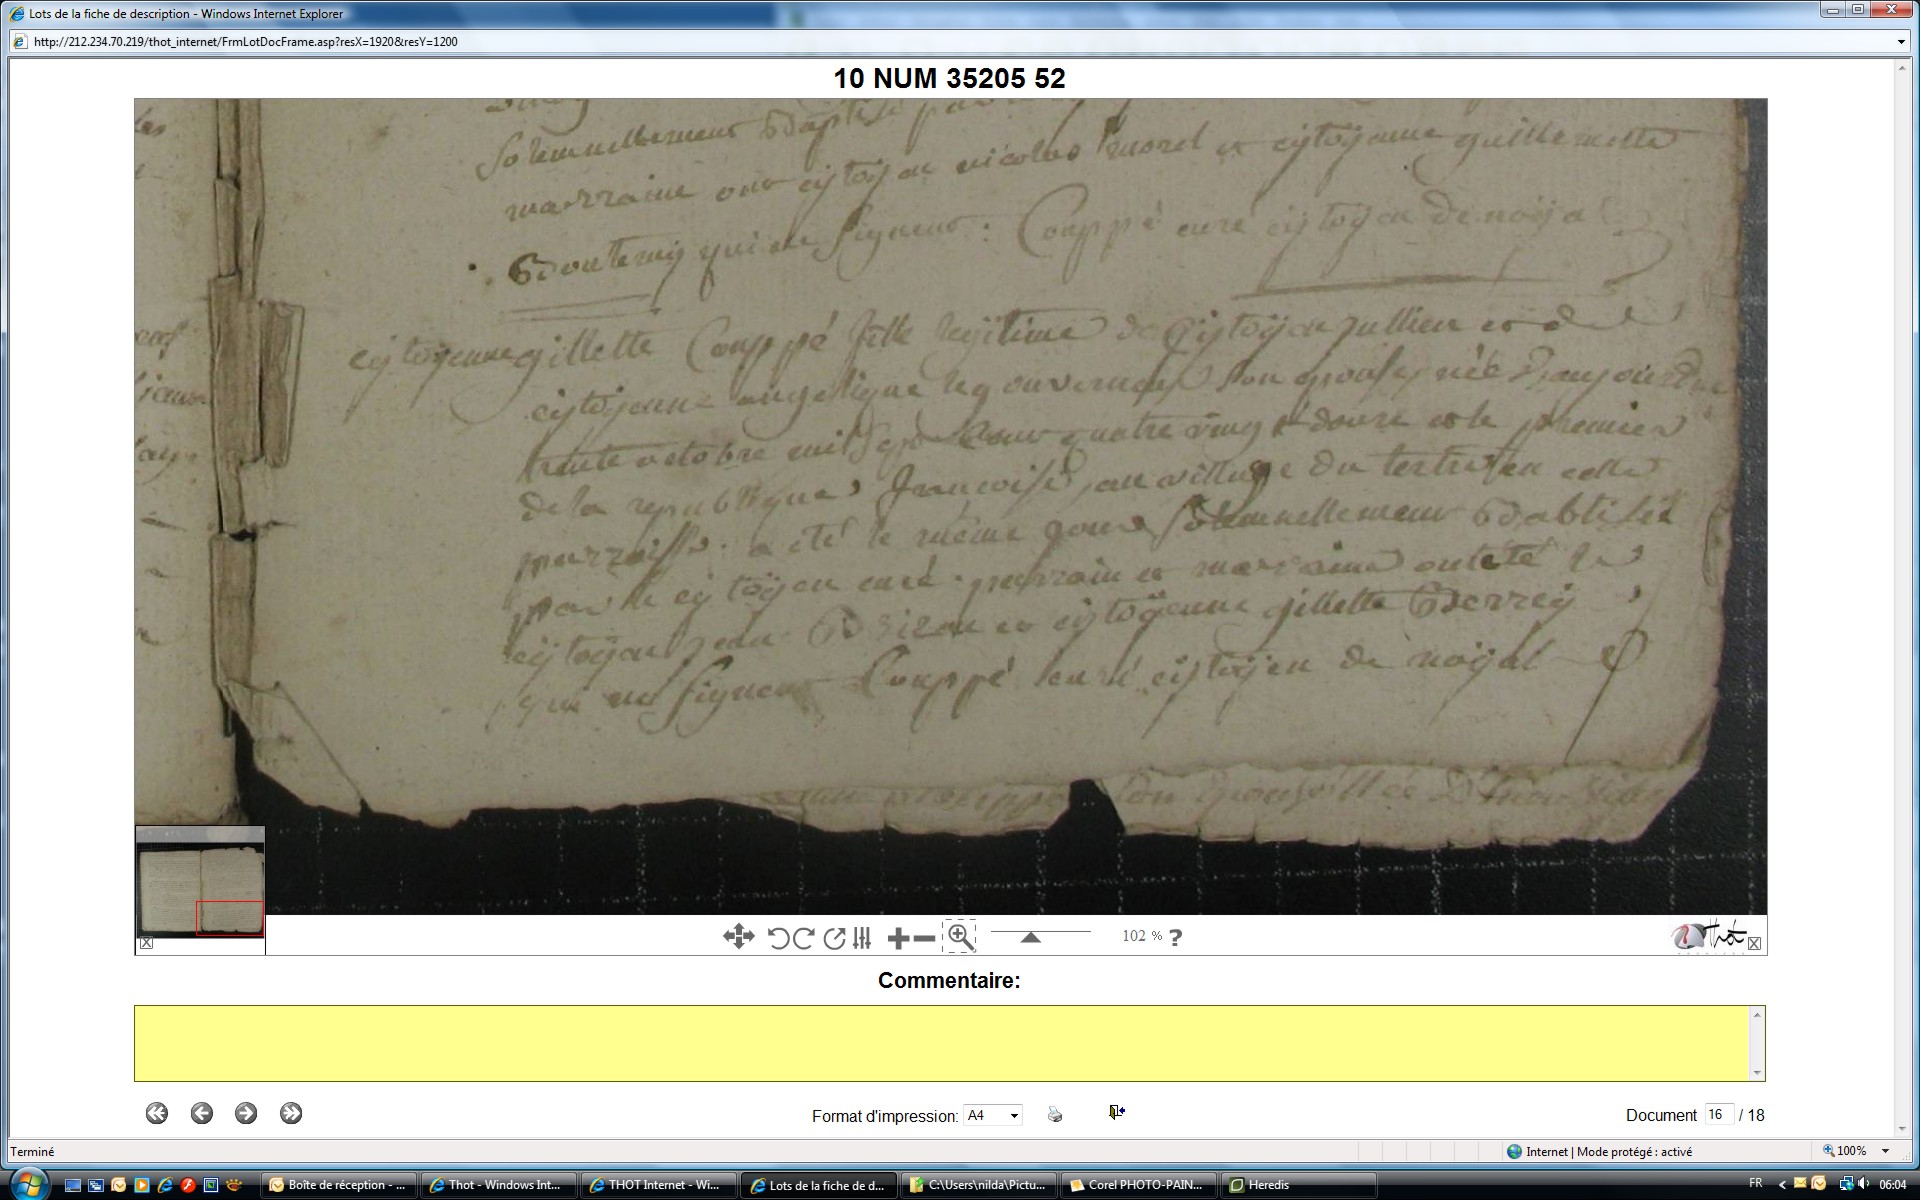 Lots de la fiche de description - Windows Internet Explorer
http://212.234.70.219/thot_internet/FrmLotDocFrame.asp?resX=1920&resY=1200
10 NUM 35205 52
Solemnellement
marraine ont cytoyen nicolas morel et cytoyenne guillemette
qui ne signent : Couppé curé cytoyen de noyal
cytoyenne gillette Couppé fille legitime de cytoyen jullien et de
cytoyenne angelique le gouverneur son epouse, née d'aujourd'hui
trente octobre mil sept cent quatre vingt douze et le premier
de la republique françoise, au village du tertre en cette
parroisse. a été le même jour solemnellement
par le cytoyen curé. parrain et marraine ont été le
cytoyen jean et cytoyenne gillette
qui ne signent Couppé curé cytoyen de noyal
102 % ?
Thot
Commentaire:
Format d'impression: A4
Document 16 / 18
Terminé
Internet | Mode protégé : activé
100%
Boîte de réception - ...
Thot - Windows Int...
THOT Internet - Wi...
Lots de la fiche de d...
C:\Users\nilda\Pictu...
Corel PHOTO-PAIN...
Heredis
FR
06:04